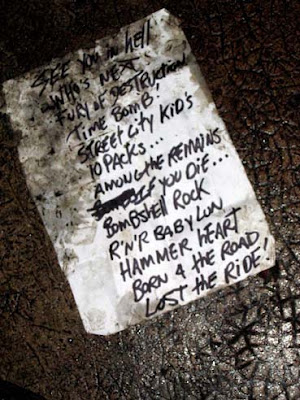 SEE YOU IN HELL
WHO'S NEXT
FURY OF DESTRUCTION
TIME BOMB!
STREET CITY KID'S
10 PACKS...
AMONG THE REMAINS
IF YOU DIE...
BOMBSHELL ROCK
R'N'R BABYLON
HAMMER HEART
BORN 4 THE ROAD
LOST THE RIDE!